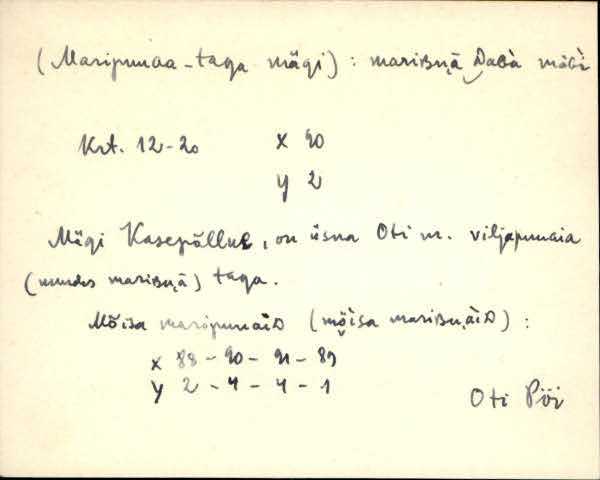 (Maripuuaa-taga mägi): mariʙu̬ä Daɢà mäɢì
Krt. 12-20 x 90
y 2
Mägi Kasepõllul, on üsna Oti m. viljapuuaia
(murdes mariʙu̬ä) taga.
Mõisa maripuuàiD (mȯ̀isa mariʙu̬àiD):
x 88 - 90 - 91 - 89
y 2 - 4 - 4 - 1
Oti Pöi